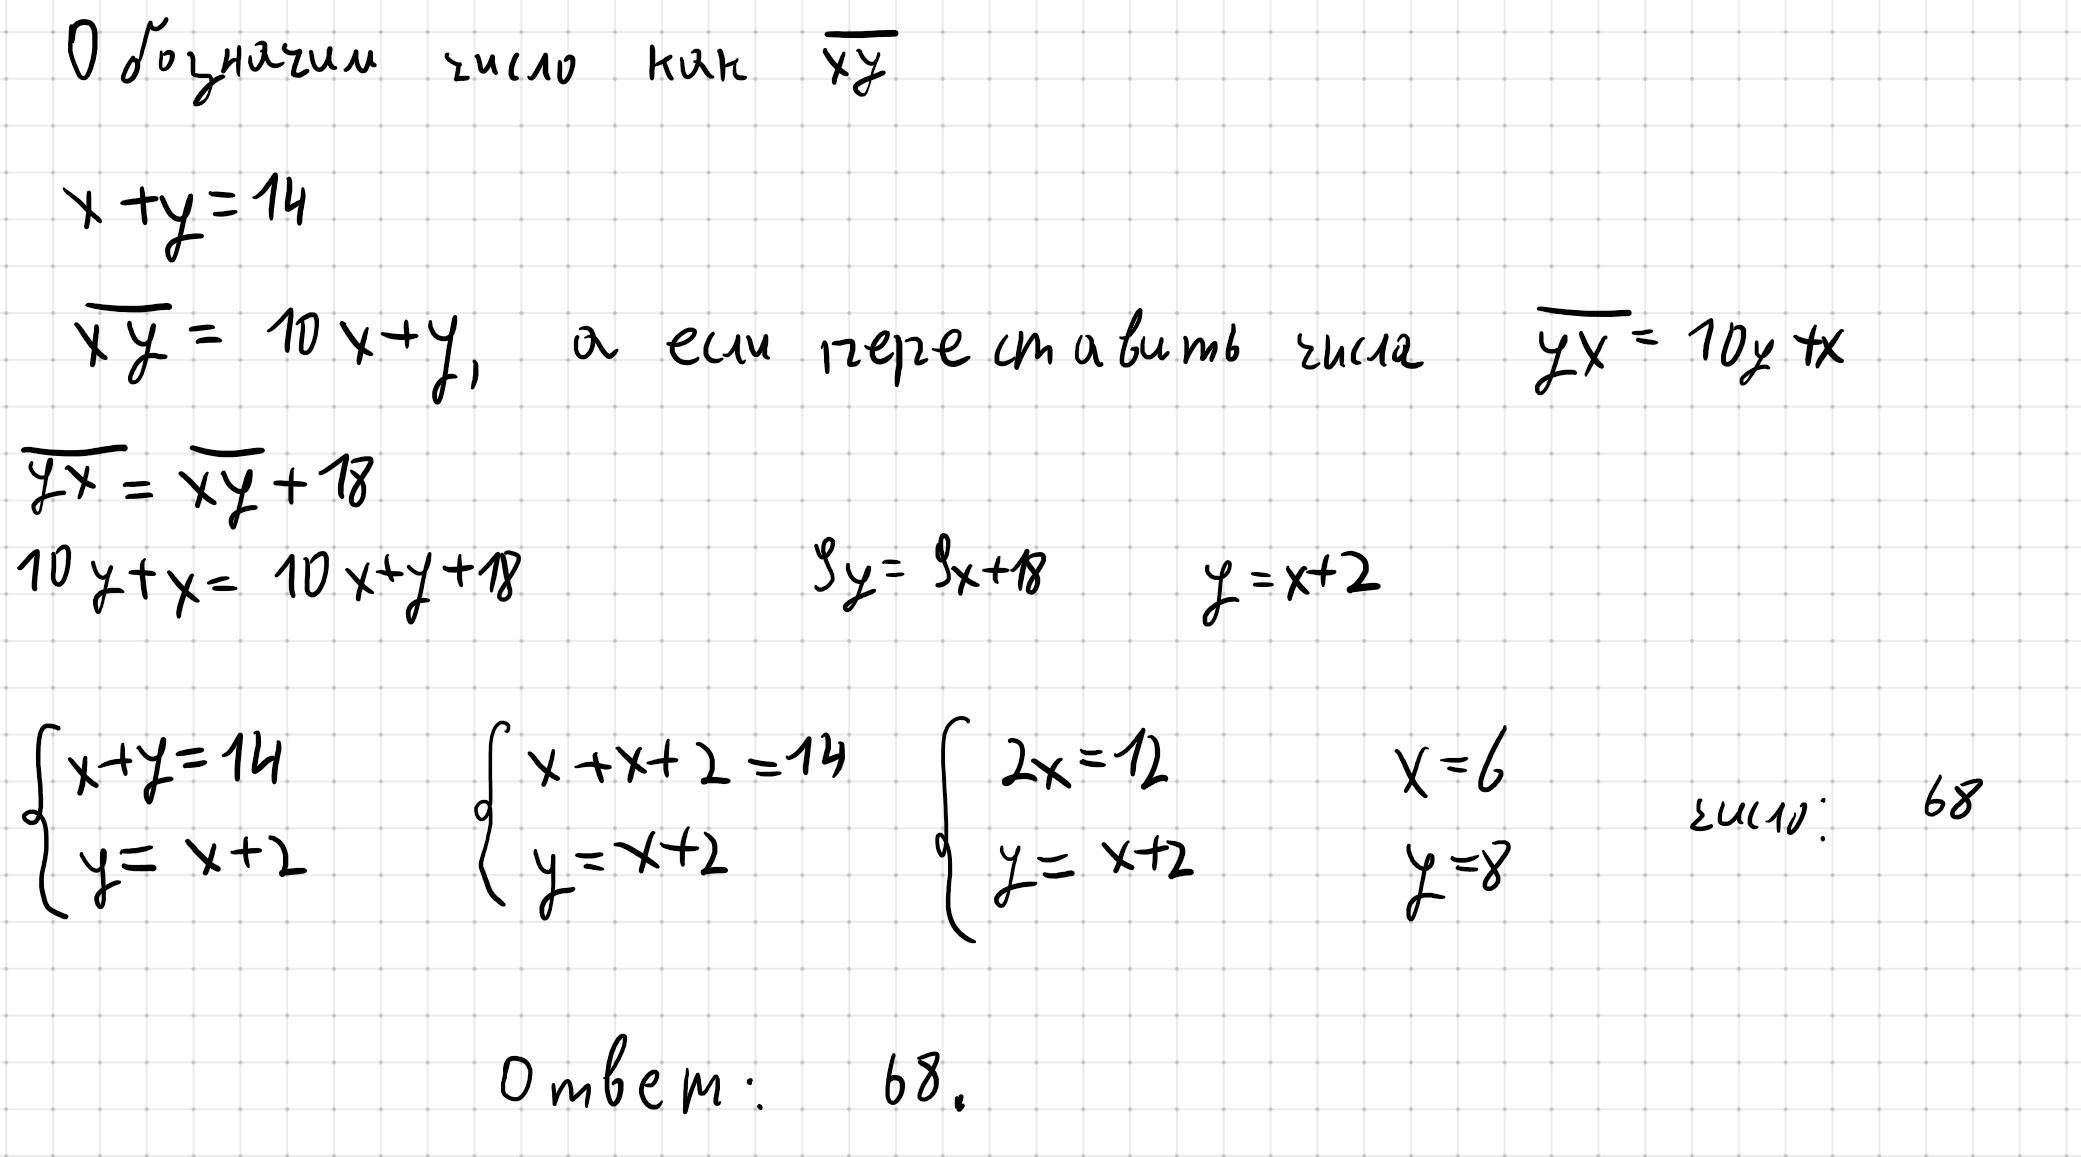 Обозначим число как \overline{xy}
x+y=14
\overline{xy} = 10x+y, а если переставить числа \overline{yx} = 10y+x
\overline{yx} = \overline{xy}+18
10y+x = 10x+y+18 9y = 9x+18 y = x+2
{ x+y=14 { x+x+2=14 { 2x=12 x=6
число: 68
y = x+2 y = x+2 y = x+2 y=8
Ответ: 68.